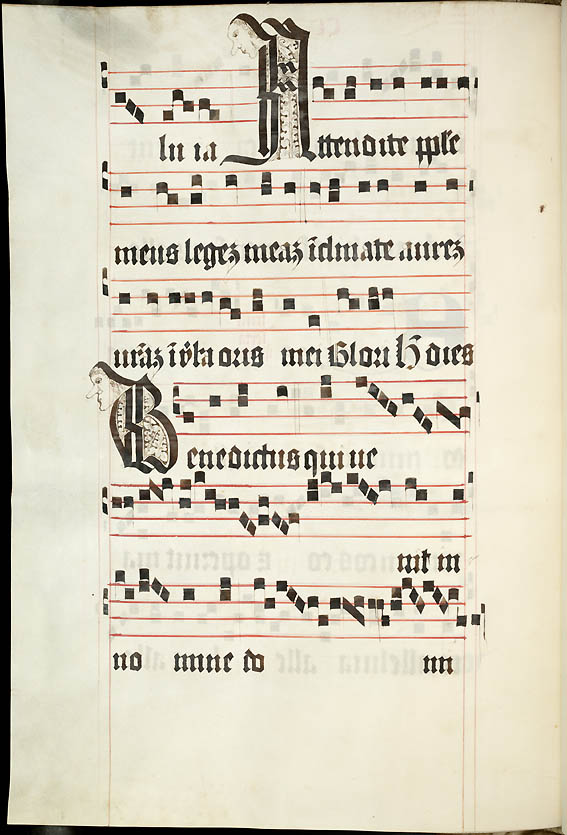 lu ia Attendite pple
meus legez meaz īclinate aurez
urāz ī ūba oris mei Glori H dies
Benedictus qui ue
nit in
no mine do mi